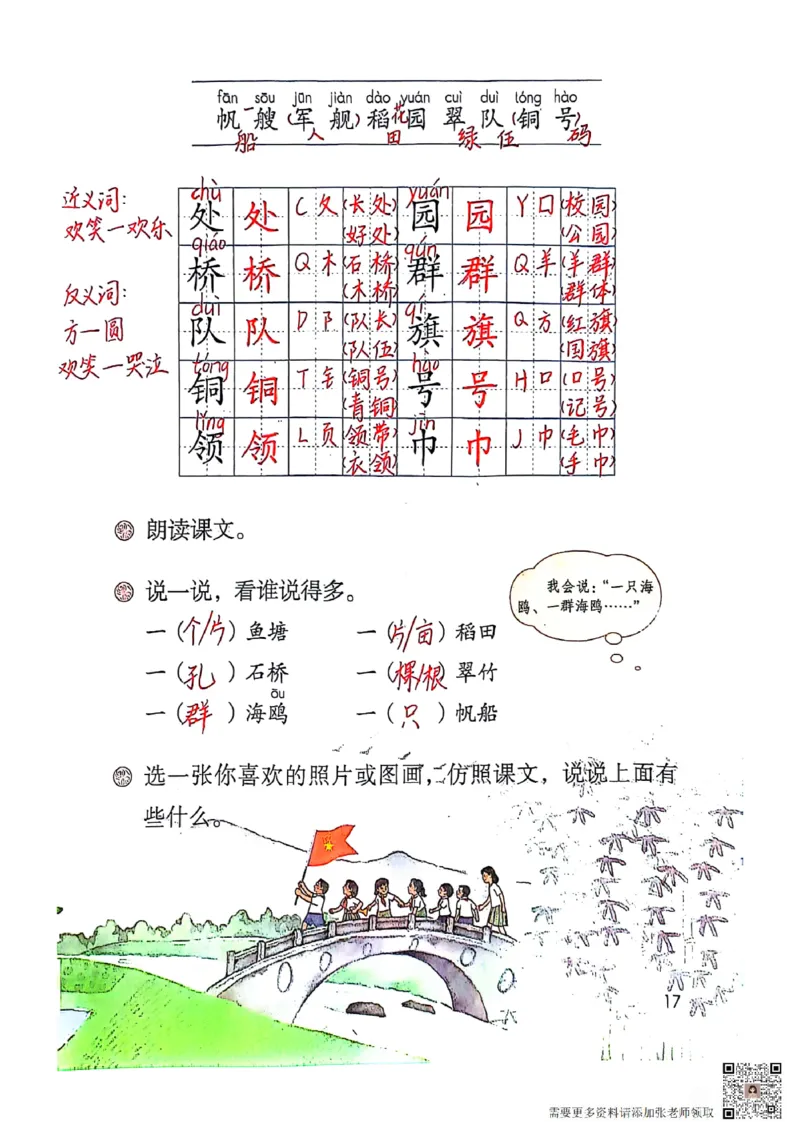 fān sōu jūn jiàn dào yuán cuì duì tóng hào
帆 一艘(军 舰)稻 花园 翠 队(铜 号)
船 人 田 绿 伍 码
近义词:
欢笑一欢乐
反义词:
方一圆
欢笑一哭泣
chù yuán
处 处 C 夂 (长处) 园 园 Y 口 (校园)
(好处) (公园)
qiáo qún
桥 桥 Q 木 (石桥) 群 群 Q 羊 (羊群)
(木桥) (群体)
duì qí
队 队 D 阝 (队长) 旗 旗 Q 方 (红旗)
(队伍) (国旗)
tóng hào
铜 铜 T 钅 (铜号) 号 号 H 口 (口号)
(青铜) (记号)
lǐng jīn
领 领 L 页 (领带) 巾 巾 J 巾 (毛巾)
(衣领) (手巾)
朗读课文。
说一说，看谁说得多。
我会说：“一只海
鸥、一群海鸥……”
一(个/片)鱼塘 一(片/亩)稻田
一(孔)石桥 一(棵/根)翠竹
ōu
一(群)海鸥 一(只)帆船
选一张你喜欢的照片或图画，仿照课文，说说上面有
些什么。
17
需要更多资料请添加张老师领取